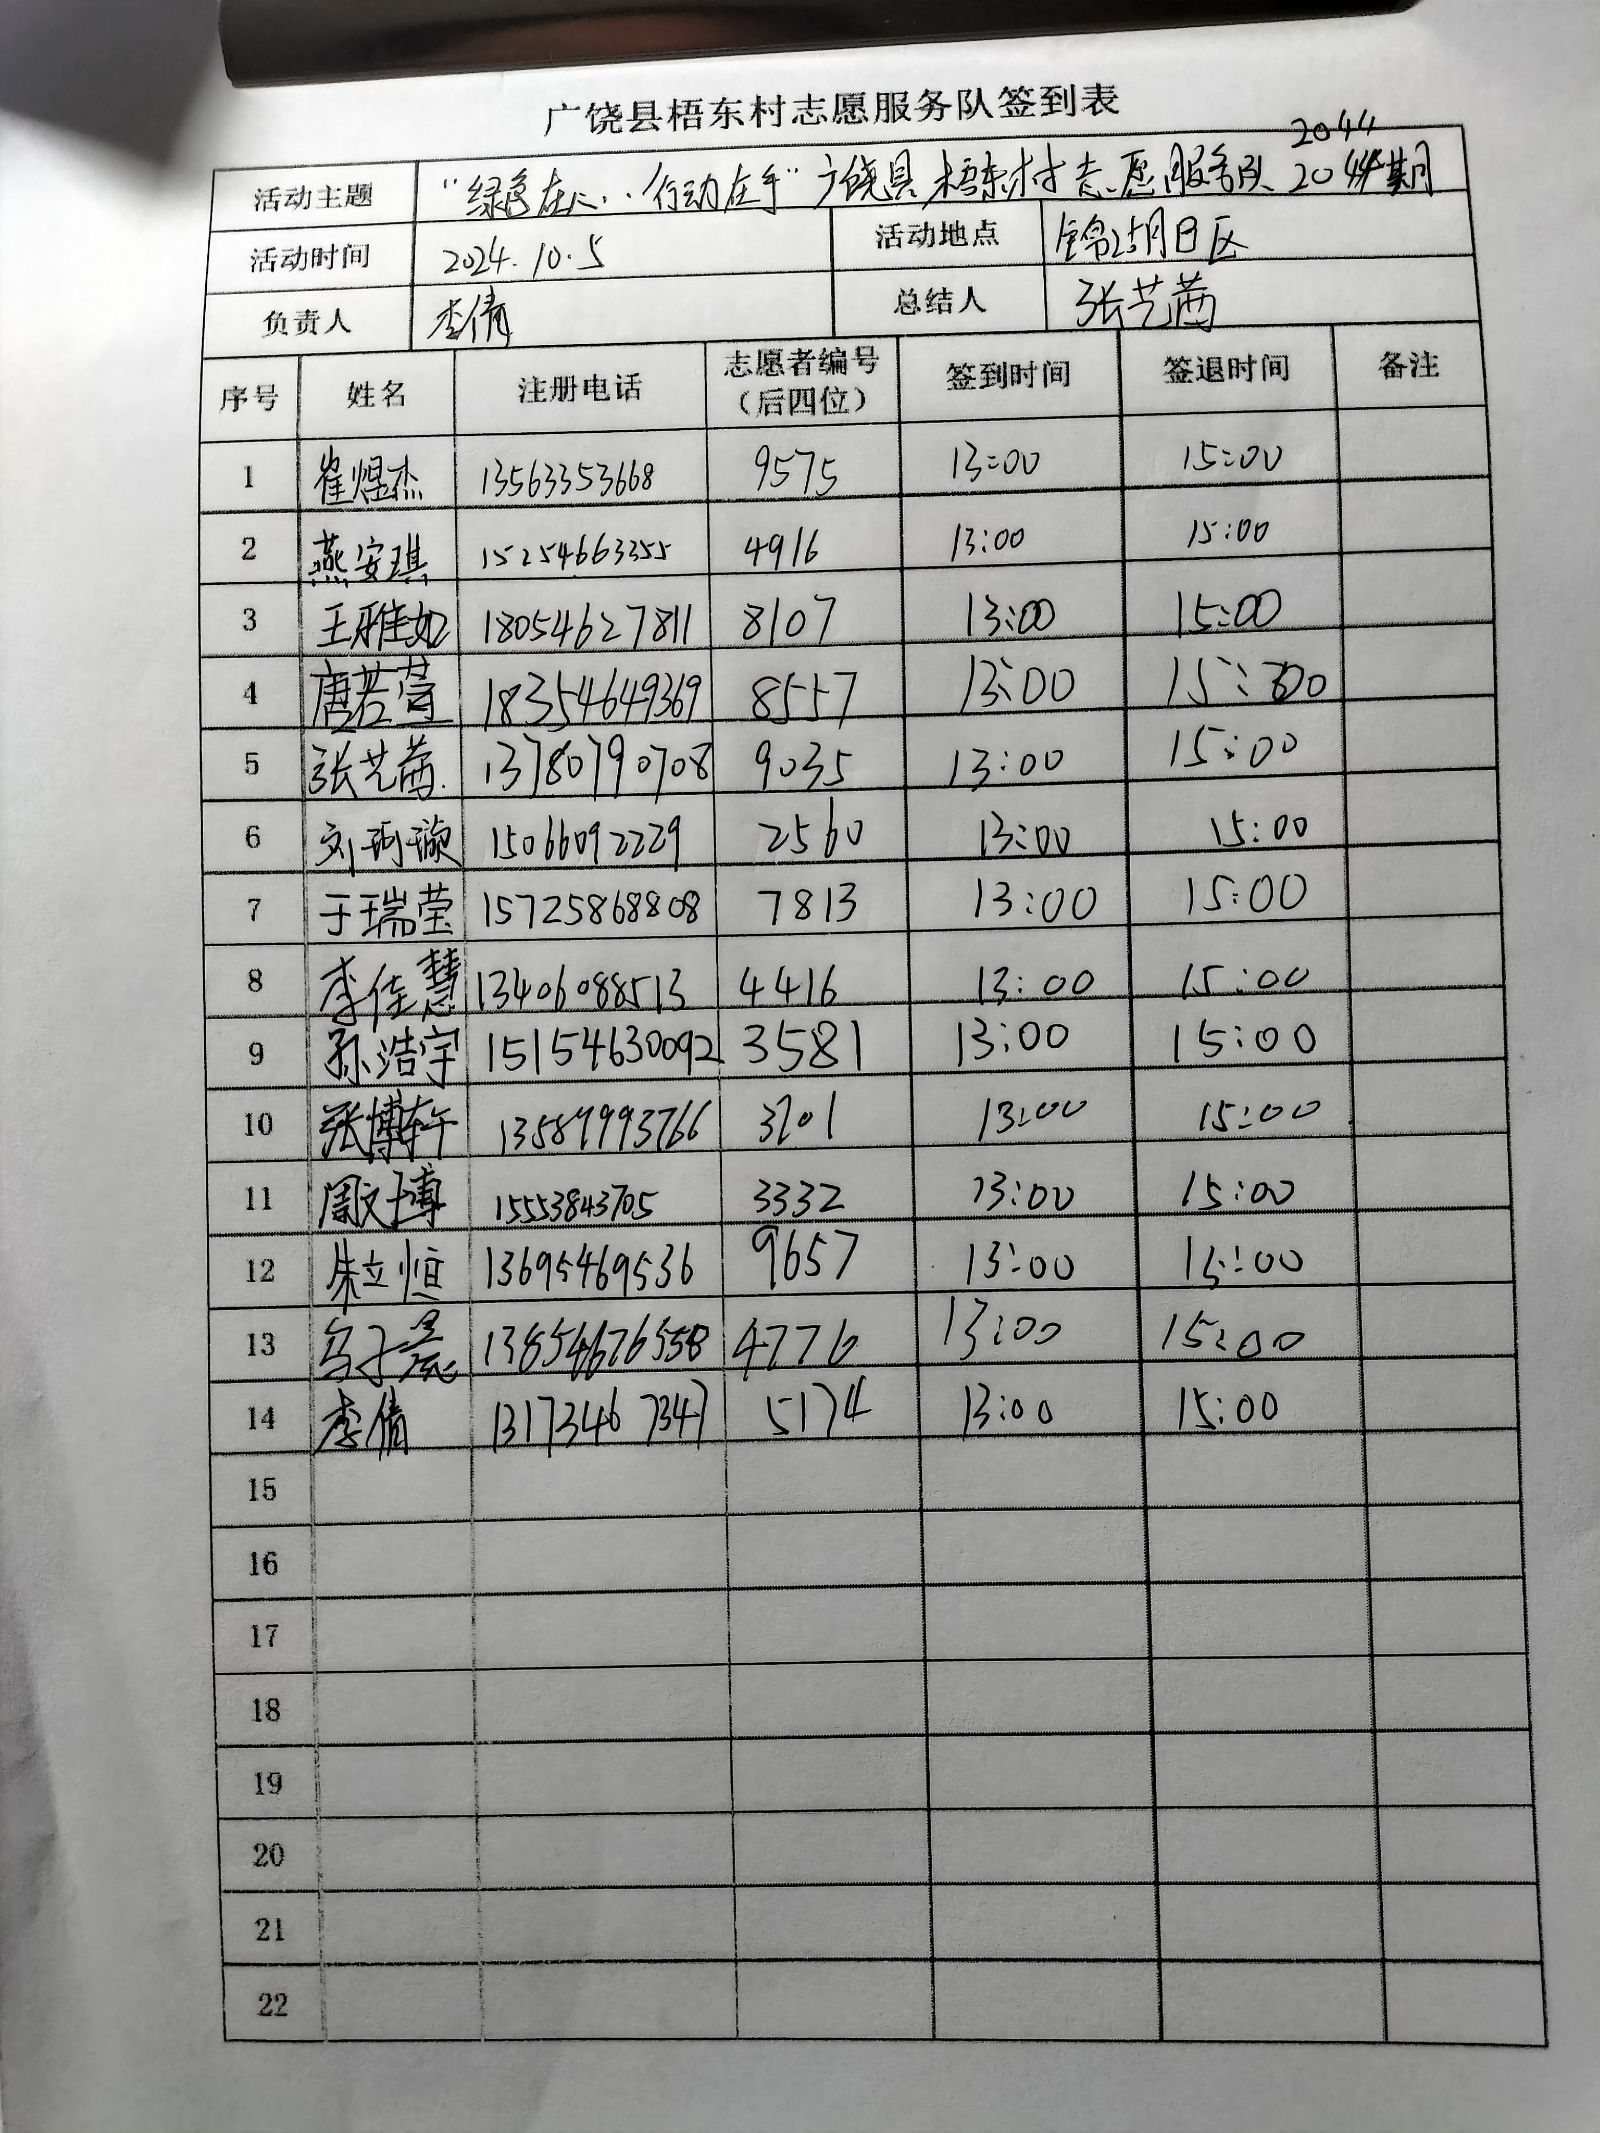 广饶县梧东村志愿服务队签到表
2044
活动主题 “绿色在心..行动在手”广饶县梧东村志愿服务队 2044期
活动时间 2024.10.5 活动地点 区
负责人 李倩 总结人 张艺茜
序号 姓名 注册电话 志愿者编号（后四位） 签到时间 签退时间 备注
1 崔煜杰 13563353668 9575 13:00 15:00
2 燕安琪 15254663355 4916 13:00 15:00
3 王雅如 18054627811 8107 13:00 15:00
4 唐若萱 18354649369 8557 13:00 15:00
5 张艺茜 13780790708 9035 13:00 15:00
6 刘珂璇 15066092229 2560 13:00 15:00
7 于瑞莹 15725868808 7813 13:00 15:00
8 李佳慧 13406088513 4416 13:00 15:00
9 孙浩宇 15154630092 3581 13:00 15:00
10 张博轩 13589993766 3701 13:00 15:00
11 周文博 15553843705 3332 13:00 15:00
12 朱立恒 13695469536 9657 13:00 15:00
13 子 13854676558 4776 13:00 15:00
14 李倩 13173467347 5174 13:00 15:00
15
16
17
18
19
20
21
22